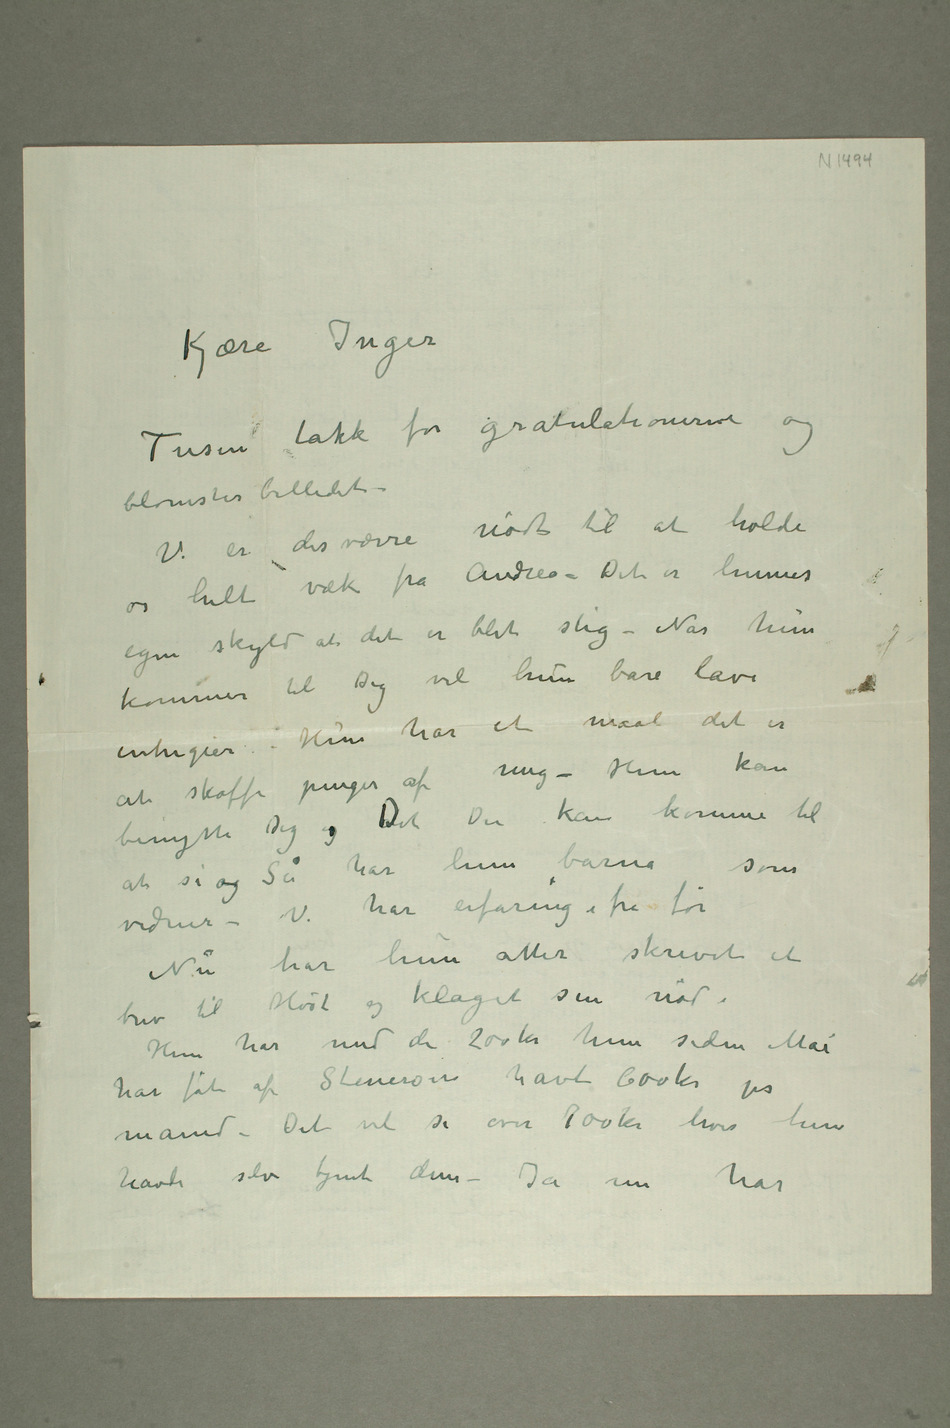 N 1494
Kjære Inger
Tusen takk for gratulationerne og
blomsterbilledet –
Vi er desværre nødt til at holde
os helt væk fra Andrea – Det er hennes
egen skyld at det er blet slig – Når hun
kommer til Dig vil hun bare lave
intrigier. Hun har et maal det er
at skaffe penger af mig – Hun kan
benytte Dig og Det Du kan komme til
at si og Så har hun barna som
vidner – Vi har erfaring i fra før
Nu har hun atter skrevet et
brev til Høst og klaget sin nød.
Hun har med de 200 kr hun siden Mai
har fåt af Stenersen havt 600 kr pr
maaned – Det vil si over 800 kr hvis hun
havde selv tjent dem – Ja nu har